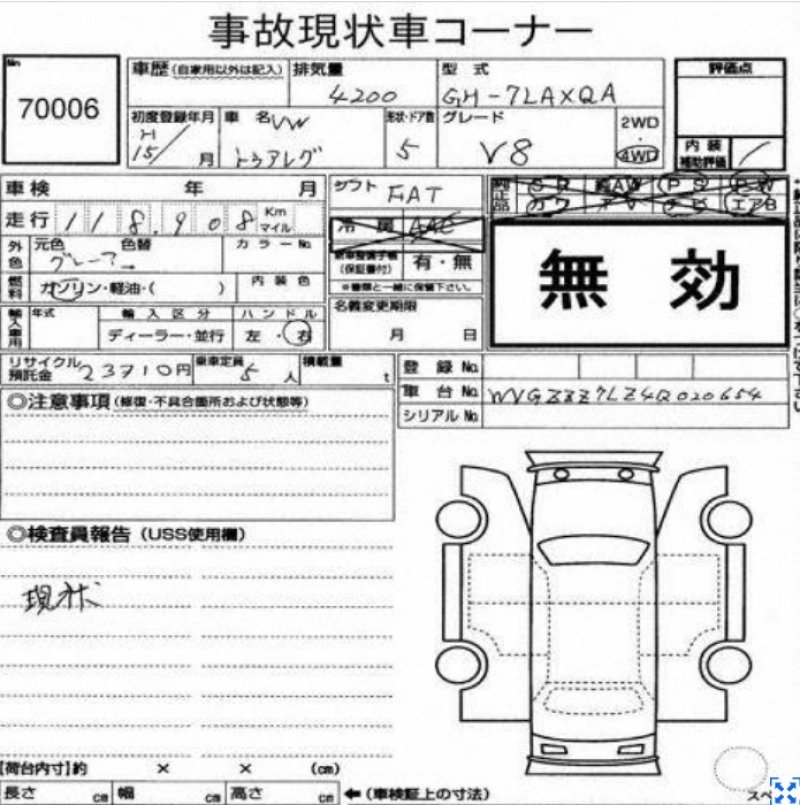 事故現状車コーナー
No
70006
車歴(自家用以外は記入)
排気量
4200
型 式
GH-7LAXQA
評価点
初度登録年月
H
15/ 月
車 名 VW
トゥアレグ
形状・ドア数
5
グレード
V8
2WD
4WD
内 装
補助評価
車検 年 月
走行 118,908 Km
マイル
シフト FAT
冷 房 AAC
外色
元色 色替
グレー?→
カラーNo
新車整備手帳
(保証書付)
有・無
※書類と一緒に保管下さい。
無 効
燃料
ガソリン・軽油・( )
内 装 色
輸入車用
年式
輸 入 区 分
ディーラー・並行
ハ ン ド ル
左・右
名義変更期限
月 日
リサイクル
預託金
23710円
乗車定員
5人
積載量
t
登 録 No
車 台 No WVGZZZ7LZ4Q020654
シリアル No
◎注意事項(修復・不具合箇所および状態等)
◎検査員報告(USS使用欄)
現状
【荷台内寸】約 × × (cm)
長さ cm 幅 cm 高さ cm ←(車検証上の寸法)
スペ